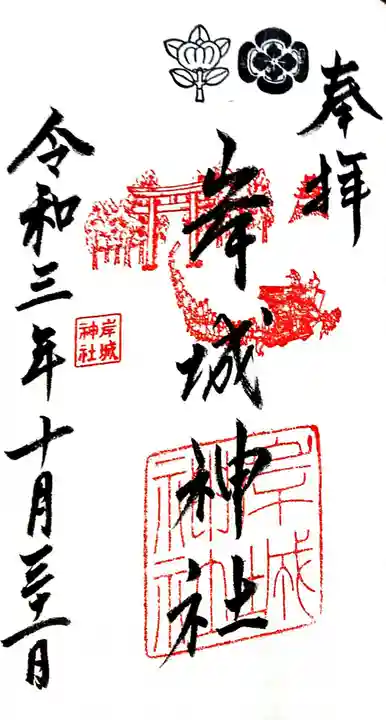 奉拝
岸城神社
岸城
神社
岸城
神社
令和三年十月三十一日